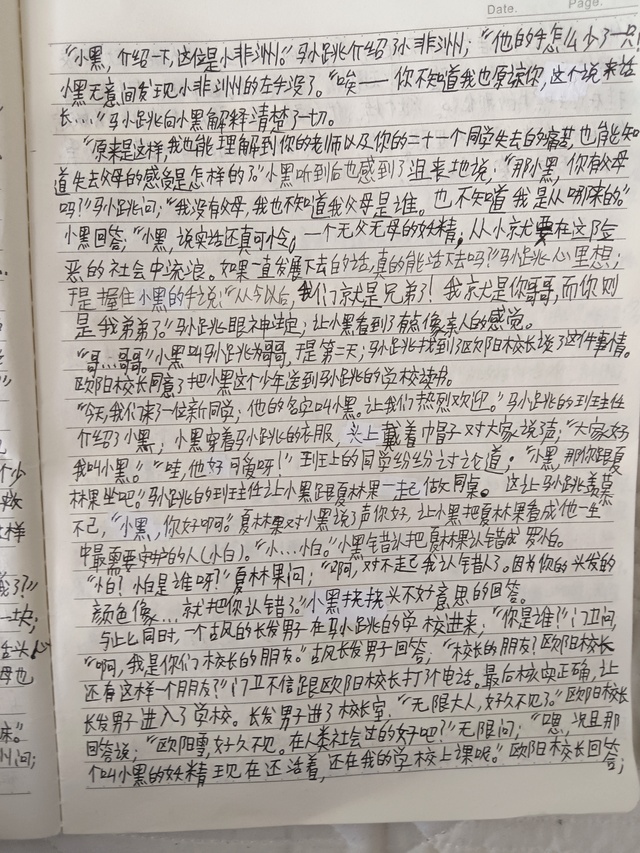 Date.
Page.
“小黑，介绍一下，这位是小非洲。”马小跳介绍了小非洲；“他的手怎么少了一只
小黑无意间发现小非洲的左手没了。“唉——你不知道我也原谅你，这个说来话
长……”马小跳向小黑解释清楚了一切。
“原来是这样，我也能理解到你的老师以及你的二十一个同学失去的痛苦，也能知
道失去父母的感受是怎样的了。”小黑听到后也感到了沮丧地说；“那小黑，你有父母
吗？”马小跳问；“我没有父母，我也不知道我父母是谁。也不知道我是从哪来的。”
小黑回答；“小黑，说实话还真可怜，一个无父无母的妖精，从小就要在这险
恶的社会中流浪。如果一直发展下去的话，真的能活下去吗？”马小跳心里想；
于是握住小黑的手说；“从今以后，我们就是兄弟了！我就是你哥哥，而你则
是我弟弟了。”马小跳眼神坚定；让小黑看到了有点像亲人的感觉。
“哥…哥哥。”小黑叫马小跳为哥哥，于是第二天；马小跳找到了欧阳校长说了这件事情。
欧阳校长同意了把小黑这个少年送到马小跳的学校读书。
“今天，我们来了一位新同学；他的名字叫小黑。让我们热烈欢迎。”马小跳的班主任
介绍了小黑；小黑穿着马小跳的衣服，头上戴着帽子对大家说了声；“大家好
我叫小黑。”“哇，他好可爱呀！”班上的同学纷纷讨论道；“小黑，那你跟夏
林果坐吧。”马小跳的班主任让小黑跟夏林果一起做同桌。这让马小跳羡慕
不已，“小黑，你好啊。”夏林果对小黑说了声你好，让小黑把夏林果看成他一生
中最需要守护的人（小白）。“小…小白。”小黑错认把夏林果认错成罗小白。
“小白？小白是谁呀？”夏林果问；“啊，对不起我认错人了。因为你的头发的
颜色像…就把你认错了。”小黑挠挠头不好意思的回答。
与此同时，一个古风的长发男子在马小跳的学校进来；“你是谁？”门卫问，
“啊，我是你们校长的朋友。”古风长发男子回答；“校长的朋友？欧阳校长
还有这样一个朋友？”门卫不信跟欧阳校长打了个电话。最后核实正确，让
长发男子进入了学校。长发男子进了校长室，“无限大人，好久不见了。”欧阳校长
回答说；“欧阳雪，好久不见。在人类社会过的好吧？”无限问；“嗯，况且那
个叫小黑的妖精现在还活着，还在我的学校上课呢。”欧阳校长回答；